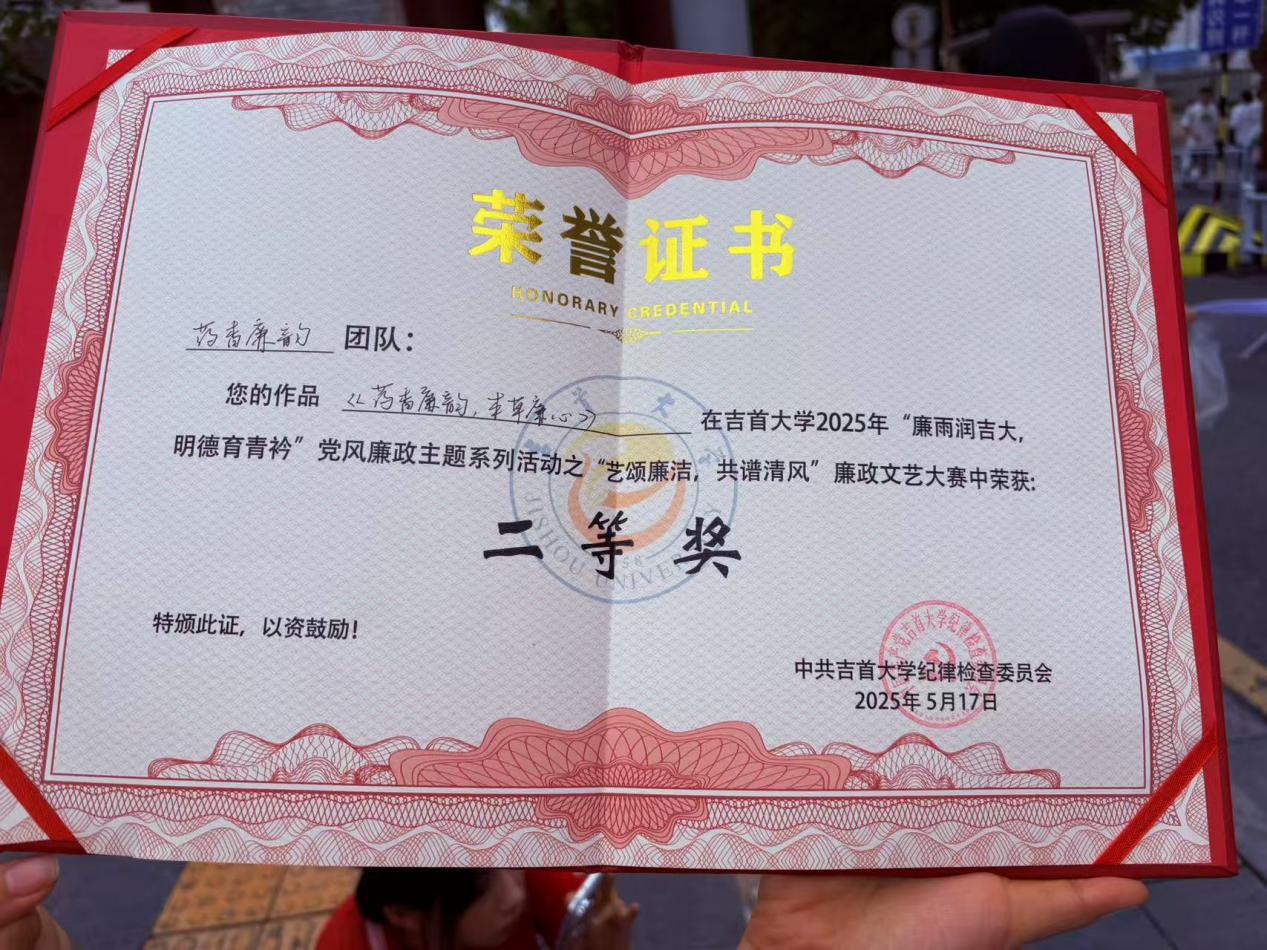 荣誉证书
HONORARY CREDENTIAL
药香廉韵 团队：
您的作品 《药香廉韵，本草廉心》 在吉首大学2025年“廉雨润吉大，
明德育青衿”党风廉政主题系列活动之“艺颂廉洁，共谱清风”廉政文艺大赛中荣获：
二等奖
特颁此证，以资鼓励！
中共吉首大学纪律检查委员会
2025年5月17日
JISHOU UNIVER